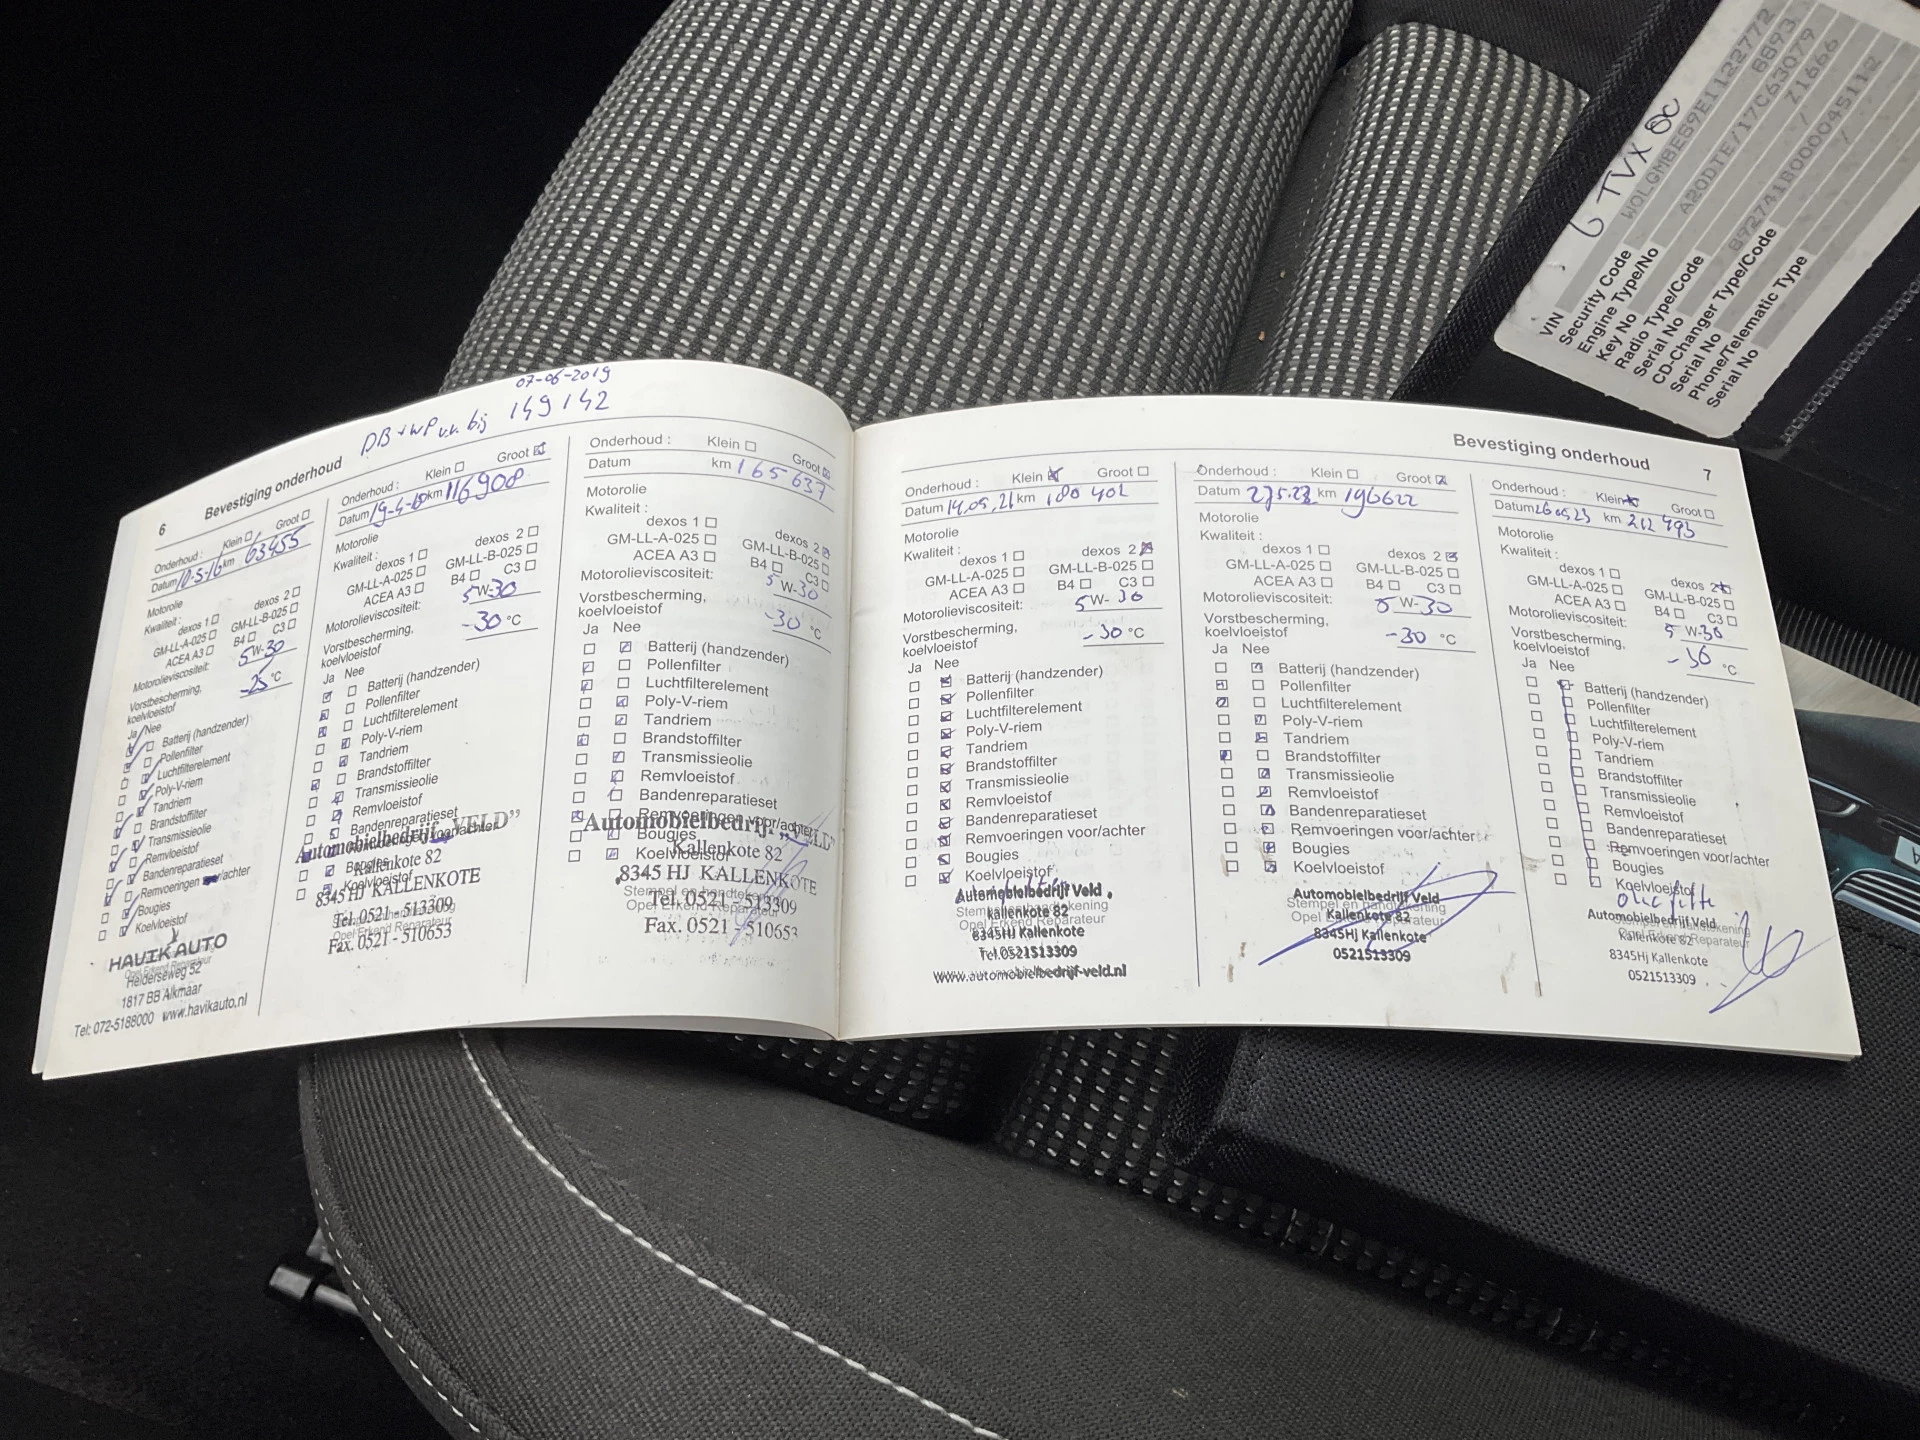 07-06-2019
DB + WP v.v. bij 149142
6 Bevestiging onderhoud
Onderhoud : Klein Groot
Datum 10-5-16 km 63455
Motorolie
Kwaliteit : dexos 1 dexos 2
GM-LL-A-025 GM-LL-B-025
ACEA A3 B4 C3
Motorolieviscositeit: 5W-30
Vorstbescherming,
koelvloeistof -25 °C
Ja Nee
Batterij (handzender)
Pollenfilter
Luchtfilterelement
Poly-V-riem
Tandriem
Brandstoffilter
Transmissieolie
Remvloeistof
Bandenreparatieset
Remvoeringen voor/achter
Bougies
Koelvloeistof
HAVIK AUTO
Opel Erkend Reparateur
Helderseweg 52
1817 BB Alkmaar
Tel: 072-5188000 www.havikauto.nl
Onderhoud : Klein Groot
Datum km 116908
Motorolie
Kwaliteit : dexos 1 dexos 2
GM-LL-A-025 GM-LL-B-025
ACEA A3 B4 C3
Motorolieviscositeit: 5W-30
Vorstbescherming,
koelvloeistof -30 °C
Ja Nee
Batterij (handzender)
Pollenfilter
Luchtfilterelement
Poly-V-riem
Tandriem
Brandstoffilter
Transmissieolie
Remvloeistof
Bandenreparatieset
Remvoeringen voor/achter
Bougies
Koelvloeistof
Automobielbedrijf „VELD”
Kallenkote 82
8345 HJ KALLENKOTE
Tel. 0521 - 513309
Fax. 0521 - 510653
Onderhoud : Klein Groot
Datum km 165637
Motorolie
Kwaliteit :
dexos 1 dexos 2
GM-LL-A-025 GM-LL-B-025
ACEA A3 B4 C3
Motorolieviscositeit: 5W-30
Vorstbescherming,
koelvloeistof -30 °C
Ja Nee
Batterij (handzender)
Pollenfilter
Luchtfilterelement
Poly-V-riem
Tandriem
Brandstoffilter
Transmissieolie
Remvloeistof
Bandenreparatieset
Remvoeringen voor/achter
Bougies
Koelvloeistof
Automobielbedrijf „VELD”
Kallenkote 82
8345 HJ KALLENKOTE
Stempel en handtekening
Opel Erkend Reparateur
Tel. 0521 - 513309
Fax. 0521 - 510653
Bevestiging onderhoud 7
Onderhoud : Klein Groot
Datum 14.05.21 km 180 402
Motorolie
Kwaliteit :
dexos 1 dexos 2
GM-LL-A-025 GM-LL-B-025
ACEA A3 B4 C3
Motorolieviscositeit: 5W-30
Vorstbescherming,
koelvloeistof -30 °C
Ja Nee
Batterij (handzender)
Pollenfilter
Luchtfilterelement
Poly-V-riem
Tandriem
Brandstoffilter
Transmissieolie
Remvloeistof
Bandenreparatieset
Remvoeringen voor/achter
Bougies
Koelvloeistof
Automobielbedrijf Veld
Stempel en handtekening
Kallenkote 82
Opel Erkend Reparateur
8345HJ Kallenkote
Tel.0521513309
www.automobielbedrijf-veld.nl
Onderhoud : Klein Groot
Datum km 196622
Motorolie
Kwaliteit :
dexos 1 dexos 2
GM-LL-A-025 GM-LL-B-025
ACEA A3 B4 C3
Motorolieviscositeit: 5W-30
Vorstbescherming,
koelvloeistof -30 °C
Ja Nee
Batterij (handzender)
Pollenfilter
Luchtfilterelement
Poly-V-riem
Tandriem
Brandstoffilter
Transmissieolie
Remvloeistof
Bandenreparatieset
Remvoeringen voor/achter
Bougies
Koelvloeistof
Automobielbedrijf Veld
Stempel en handtekening
Kallenkote 82
Opel Erkend Reparateur
8345Hj Kallenkote
0521513309
Onderhoud : Klein Groot
Datum 26 05 23 km 212 493
Motorolie
Kwaliteit :
dexos 1 dexos 2
GM-LL-A-025 GM-LL-B-025
ACEA A3 B4 C3
Motorolieviscositeit: 5W-30
Vorstbescherming,
koelvloeistof -36 °C
Ja Nee
Batterij (handzender)
Pollenfilter
Luchtfilterelement
Poly-V-riem
Tandriem
Brandstoffilter
Transmissieolie
Remvloeistof
Bandenreparatieset
Remvoeringen voor/achter
Bougies
Koelvloeistof
Automobielbedrijf Veld
Stempel en handtekening
Kallenkote 82
Opel Erkend Reparateur
8345Hj Kallenkote
0521513309
6 TVX 80
VIN W0LGM8ES9E1122772
Security Code 8893
Engine Type/No A20DTE/17C63079
Key No / Z1666
Radio Type/Code /
Serial No
CD-Changer Type/Code /
Serial No
Phone/Telematic Type
Serial No